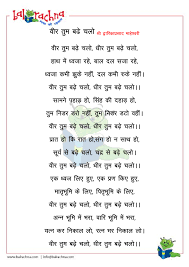 balrachna
वीर तुम बढे चलो श्री द्वारिकाप्रसाद माहेश्वरी
वीर तुम बढे चलो, धीर तुम बढे चलो,
हाथ में ध्वजा रहे, बाल दल सजा रहे,
ध्वजा कभी झुके नहीं, दल कभी रुके नहीं।
वीर तुम बढे चलो, धीर तुम बढे चलो।।
सामने पहाड़ हो, सिंह की दहाड़ हो,
तुम निडर डरो नहीं, तुम निडर डटो वहीं।
वीर तुम बढे चलो, धीर तुम बढे चलो।।
प्रात हो कि रात हो, संग हो न साथ हो,
सूर्य से बढे चलो, चन्द्र से बढे चलो।
वीर तुम बढे चलो, धीर तुम बढे चलो।।
एक ध्वज लिए हुए, एक प्रण किए हुए,
मातृभूमि के लिए, पितृभूमि के लिए,
वीर तुम बढे चलो, धीर तुम बढे चलो।।
अन्न भूमि में भरा, वारि भूमि में भरा,
यत्न कर निकाल लो, रत्न भर निकाल लो।
वीर तुम बढे चलो, धीर तुम बढे चलो।।
www.balrachna.com | info@balrachna.com